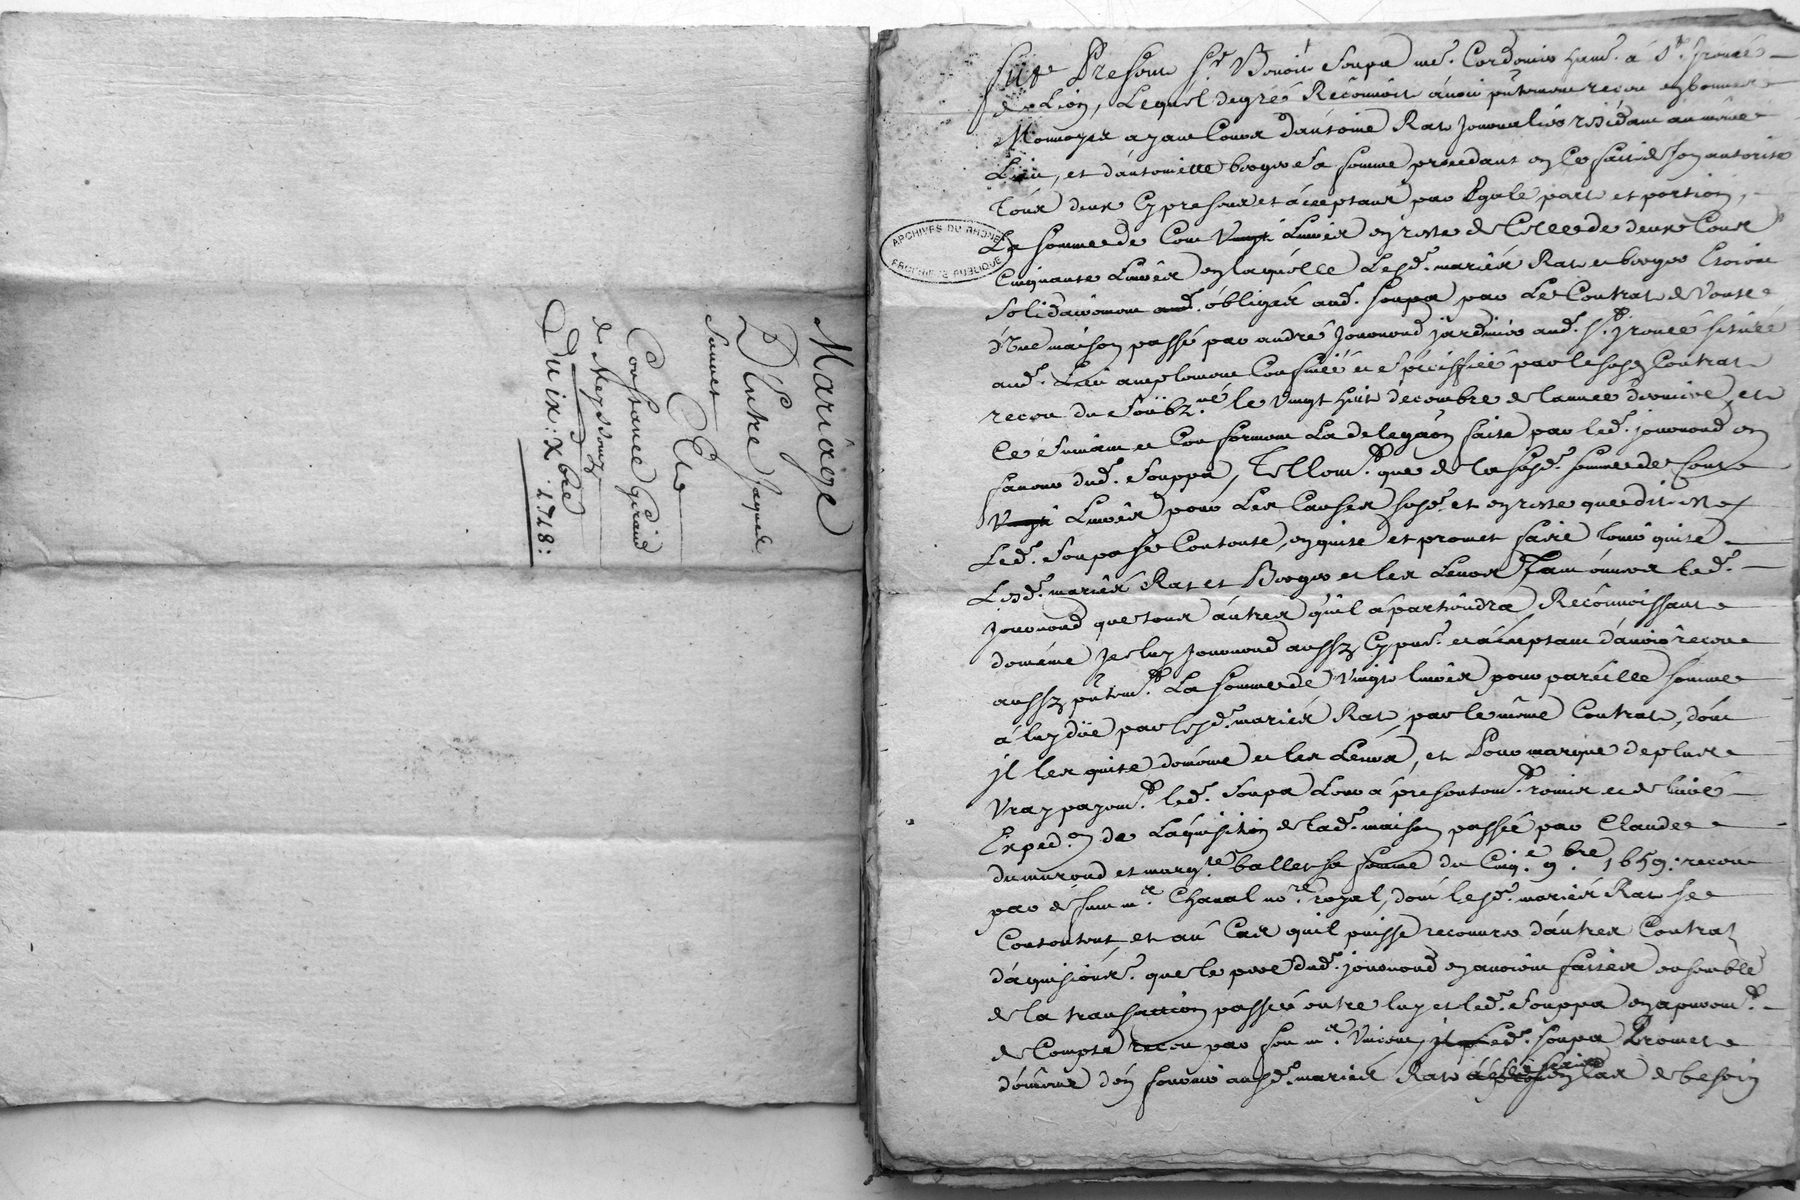 Mariage
D'Entre Jaques
Sonnet
Et
Constance Giraud
de Meyssonz
Du ix: Xbre
1718:
ARCHIVES DU RHONE
ARCHIVE PUBLIQUE
fut Present Sr. Benoit Soupa me. Cordonier habt. à St. Irenée
de Lion, Lequel de gré Reconnoit avoir recu en bonnes
Monnoyes ayant Cours d'antoine Rat Journalier residant au même
Lieu, et d'antoinette boyer Sa femme procedant en Ce fait de Son autorité
tous deux Cy presens et acceptans par Egale part et portion,
La somme de Cent vingt Livres en reste de Celle de deux Cent
Cinquante Livres en laquelle Lesd. mariés Rat et boyer Etoient
Solidairement obligés aud. Soupa par Le Contrat de Vente
d'Une maison passé par andré Jouvenond jardinier aud. St. Irenée située
aud. Lieu amplement Confinée et Speciffiée par le susd. Contrat
receu du Soubz.né le vingt huit decembre de l'année derniere, et
Ce Suivant et Conforment La delega͠on faite par led. jouvenond en
faveur dud. Souppa, tellemt. que de la susd. somme de Cent
Vingt Livres pour Les Causes susd. et en reste que dit est
Led. Soupa Se Contente, en quite et promet faire tenir quite
Lesd. mariés Rat et Boyer et les Leurs tant envers led.
jouvenond que tous autres qu'il apartiendra Reconnoissant
de même Iceluy Jouvenond aussy Cy pnt. et acceptant d'avoir receu
aussy pntemt. La somme de vingt livres pour pareille somme
à luy düe par lesd. mariés Rat, par le même Contrat, dont
jl les quite de même et les Leurs, et Pour marque de plus
vray payemt. led. Soupa Leur à presentemt. remis et delivré
Exped.on de L'aquisition de lad. maison passée par Claude
dumurond et marg.te ballet sa femme du Cinq.e 9.bre 1659: receue
par defunt m.e Chanal no.re royal, dont lesd. mariés Rat se
Contentent et au Cas qu'il puisse recouvrer d'autres Contrat
d'aquisions. que le pere dud. jouvenond en avoient faites ensemble
de la transaction passée entre luy et led. Souppa en apurem.t
de Compte receu par feu m.e Vincent, led. Soupa Promet
de même d'en fournir ausd. mariés Rat en Cas de besoin